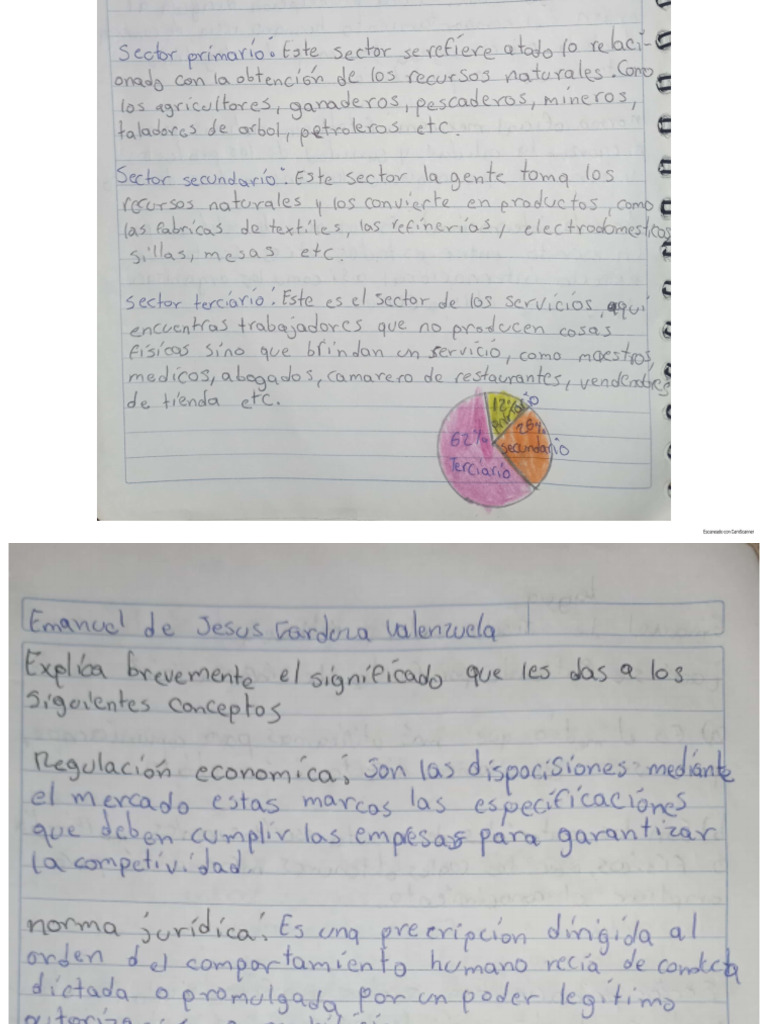 Sector primario: Este sector se refiere a todo lo relaci-
onado con la obtención de los recursos naturales. Como
los agricultores, ganaderos, pescaderos, mineros,
taladores de arbol, petroleros etc.
Sector secundario: Este sector la gente toma los
recursos naturales y los convierte en productos, como
las fabricas de textiles, las refinerias, electrodomesticos
sillas, mesas etc.
Sector terciario: Este es el sector de los servicios, aqui
encuentras trabajadores que no producen cosas
físicas sino que brindan un servicio, como maestros,
medicos, abogados, camarero de restaurantes, vendedores
de tienda etc.
12% primario
26% secundario
62% Terciario
Escaneado con CamScanner
Emanuel de Jesus Cardoza Valenzuela
Explica brevemente el significado que les das a los
siguientes conceptos
Regulación economica: Son las dispocisiones mediante
el mercado estas marcas las especificaciones
que deben cumplir las empresas para garantizar
la competividad
norma jurídica: Es una precripcion dirigida al
orden del comportamiento humano recia de conducta
dictada o promulgada por un poder legitimo